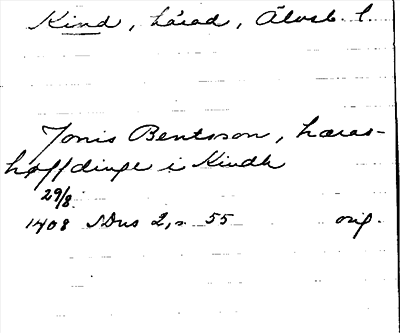 Kind, härad, Älvsb. l.
Jonis Bentsson, hæras-
höffdinge i Kindh
29/8
1408 SDns 2, s 55 orig.